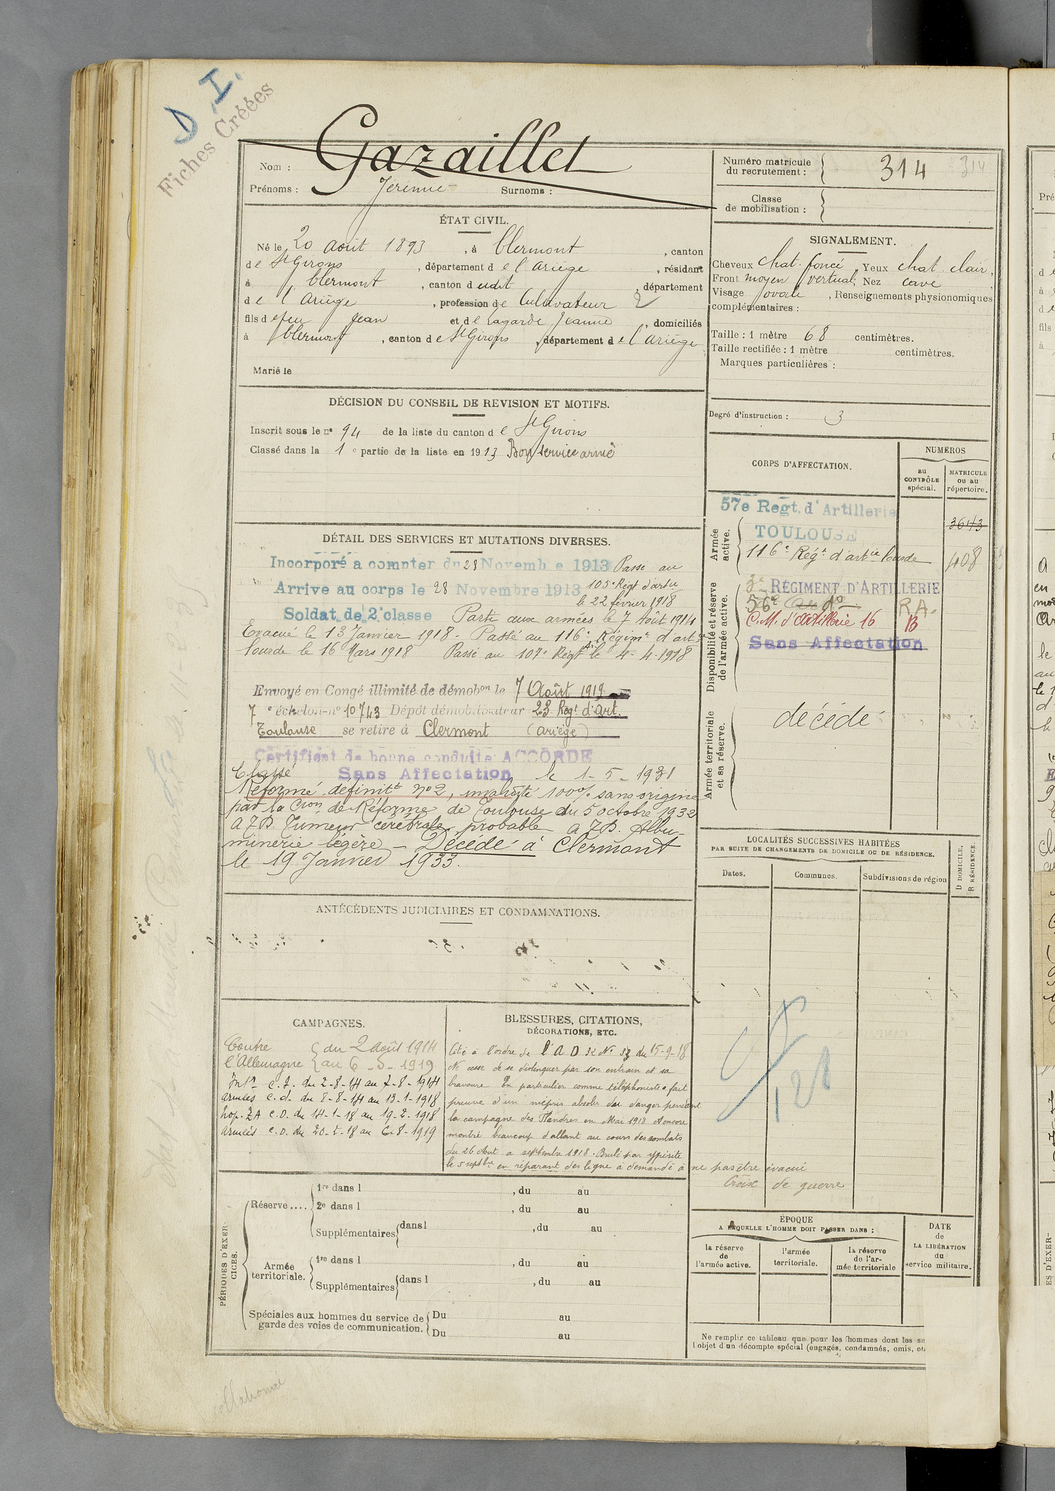 D. I.
Fiches Créées
Nom : Gazaillet
Prénoms : Jérémie Surnoms :
Numéro matricule du recrutement : 314 314
Classe de mobilisation :
ÉTAT CIVIL.
Né le 20 août 1893, à Clermont, canton
de St Girons, département de l'Ariège, résidant
à Clermont, canton dudit, département
de l'Ariège, profession de Cultivateur 2
fils de feu Jean et de Lagarde Jeanne, domiciliés
à Clermont, canton de St Girons, département de l'Ariège
Marié le
SIGNALEMENT.
Cheveux chat. foncé, Yeux chat. clair,
Front moyen vertical, Nez cave
Visage ovale, Renseignements physionomiques
complémentaires :
Taille : 1 mètre 68 centimètres.
Taille rectifiée : 1 mètre centimètres.
Marques particulières :
Degré d'instruction : 3
DÉCISION DU CONSEIL DE REVISION ET MOTIFS.
Inscrit sous le no 94 de la liste du canton de St Girons
Classé dans la 1e partie de la liste en 1913 Bon service armé
CORPS D'AFFECTATION.
NUMÉROS
au CONTRÔLE spécial.
MATRICULE ou au répertoire.
Armée active.
57e Regt. d'Artillerie
TOULOUSE
3643
116e Régt d'artie lourde 408
Disponibilité et réserve de l'armée active.
RÉGIMENT D'ARTILLERIE
56e R.A.
C.M. d'Artillerie 16 B
Sans Affectation
Armée territoriale et sa réserve.
décédé
DÉTAIL DES SERVICES ET MUTATIONS DIVERSES.
Incorporé a compter du 28 Novembre 1913 Passé au
Arrive au corps le 28 Novembre 1913 103e Régt d'artie
le 22 février 1918
Soldat de 2e classe Parti aux armées le 7 Août 1914
Evacué le 13 Janvier 1918 - Passé au 116e Régimt d'artie
lourde le 16 Mars 1918 Passé au 107e Régt le 4-4-1918
Envoyé en Congé illimité de démobon le 7 Août 1919
7e échelon no 10743 Dépôt démobilisateur 23 Régt d'Art.
Toulouse se retire à Clermont (Ariège)
Certificat de bonne conduite ACCORDÉ
Classé Sans Affectation le 1-5-1931
Réformé définitt no 2, invalidité 100% sans origine
par la Cion de Réforme de Toulouse du 5 octobre 1932
A.7.B. Tumeur cérébrale probable à 7.B. Albu-
minerie légère - Décédé à Clermont
le 19 Janvier 1933.
LOCALITÉS SUCCESSIVES HABITÉES
PAR SUITE DE CHANGEMENTS DE DOMICILE OU DE RÉSIDENCE.
Dates.
Communes.
Subdivisions de région
D DOMICILE. R RÉSIDENCE.
ANTÉCÉDENTS JUDICIAIRES ET CONDAMNATIONS.
CAMPAGNES.
Contre du 2 août 1914
l'Allemagne au 6-8-1919
Intr c.s. du 2-8-14 au 7-8-1914
armées c.d. du 8-8-14 au 13-1-1918
hop. ZA c.d. du 14-1-18 au 19-2-1918
armées c.d. du 20-2-18 au 6-8-1919
BLESSURES, CITATIONS,
DÉCORATIONS, ETC.
Cité à l'ordre de l'A D 32 No 53 du 15-9-18
Ne cesse de se distinguer par son entrain et sa
bravoure. En particulier comme téléphoniste a fait
preuve d'un mépris absolu du danger pendant
la campagne des Flandres en Mai 1918 A encore
montré beaucoup d'allant au cours des combats
du 26 Août a septembre 1918. Brulé par ypérite
le 5 septbre en réparant des ligne a demandé à ne pas être évacué
Croix de guerre
128
PÉRIODES D'EXERCICES.
Réserve....
1re dans l , du au
2e dans l , du au
Supplémentaires dans l , du au
Armée territoriale.
1re dans l , du au
Supplémentaires dans l , du au
Spéciales aux hommes du service de garde des voies de communication.
Du au
Du au
ÉPOQUE
A LAQUELLE L'HOMME DOIT PASSER DANS :
la réserve de l'armée active.
l'armée territoriale.
la réserve de l'armée territoriale
DATE de LA LIBÉRATION du service militaire.
Ne remplir ce tableau que pour les hommes dont les
l'objet d'un décompte spécial (engagés, condamnés, omis,